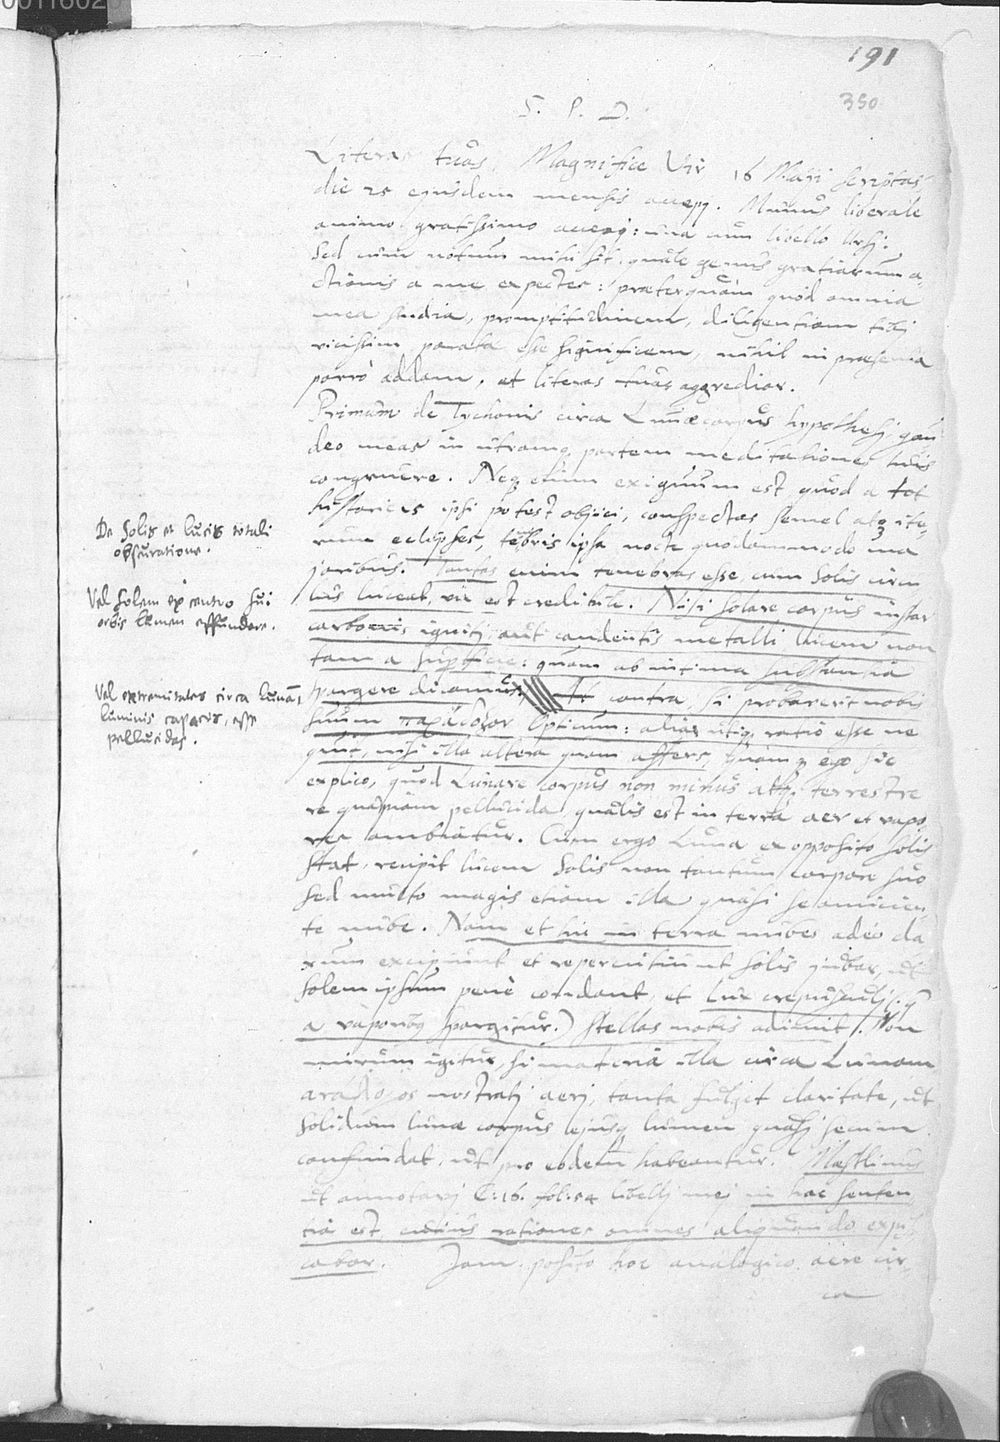 191
350
S. P. D.
Literas tuas, Magnifice Vir 16 Maii scriptas,
die 25 ejusdem mensis accepj. Munus liberale
animo gratissimo accepj: una cum libello Ursi:
Sed cum notum mihi sit, quale genus gratiarum a-
ctionis a me expectes: praeterquam quod omnia
mea studia, promptitudinem, diligentiam tibi
vicissim parata esse significem, nihil in praesentia
porro addam, et literas tuas aggredior.
Primum de Tychonis circa Lunae corpus hypothesi, gau
deo meas in utramq partem meditationes tuis
congruere. Neq enim exiguum est quod a tot
historicis ipsi potest objici, conspectas semel atq ite-
rum eclipses, tenebris ipsa nocte quodammodo ma
joribus. Tantas enim tenebras esse, cum Solis circu
lus luceat, vix est credibile. Nisi solare corpus instar
carbonis igniti, aut candentis metalli lucem non
tam a superficie: quam ab intima substantia
spargere dicamus. At contra, si probaverit nobis
suum παράδοξον Opticum: alias utiq ratio esse ne
quit, nisi illa altera quam affers, quam ego sic
explico, quod Lunare corpus non minus atq terrestre
re quapiam pellucida, qualis est in terra aer et vapo
res ambiatur. Cum ergo Luna ex opposito solis
stat, recipit lucem Solis non tantum corpore suo
sed multo magis etiam illa quasi se amicien
te nube. Nam et hic in terra nubes adeo cla
rum excipiunt et repercutiunt solis jubar, ut
solem ipsum pene condant, et Lux crepusculj (: q
a vaporibq spargitur:) stellas nobis adimit. Non
mirum igitur, si materia illa circa Lunam
ἀνάλογος nostratj aerj, tanta fulget claritate, ut
solidum lunae corpus ejusq lumen quasj secum
confundat, ut pro eodem habeantur. Maestlinus
ut annotavj C: 16. fol: 54 libellj mej in hac senten
tia est, cuius rationes omnes aliquando expis
cabor. Jam posito hoc analogico aere cir
ca
De Solis et lucis totali
obscuratione.
Vel solem ex centro sui
orbis lumen effundere.
Vel extremitates circa lunam,
luminis capaces, esse
pellucidas.